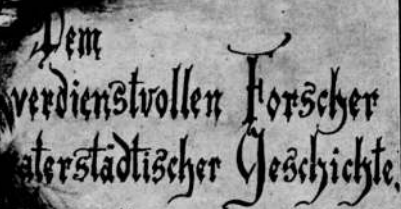 Dem
verdienstvollen Forscher
aterstädtischer Geschichte.